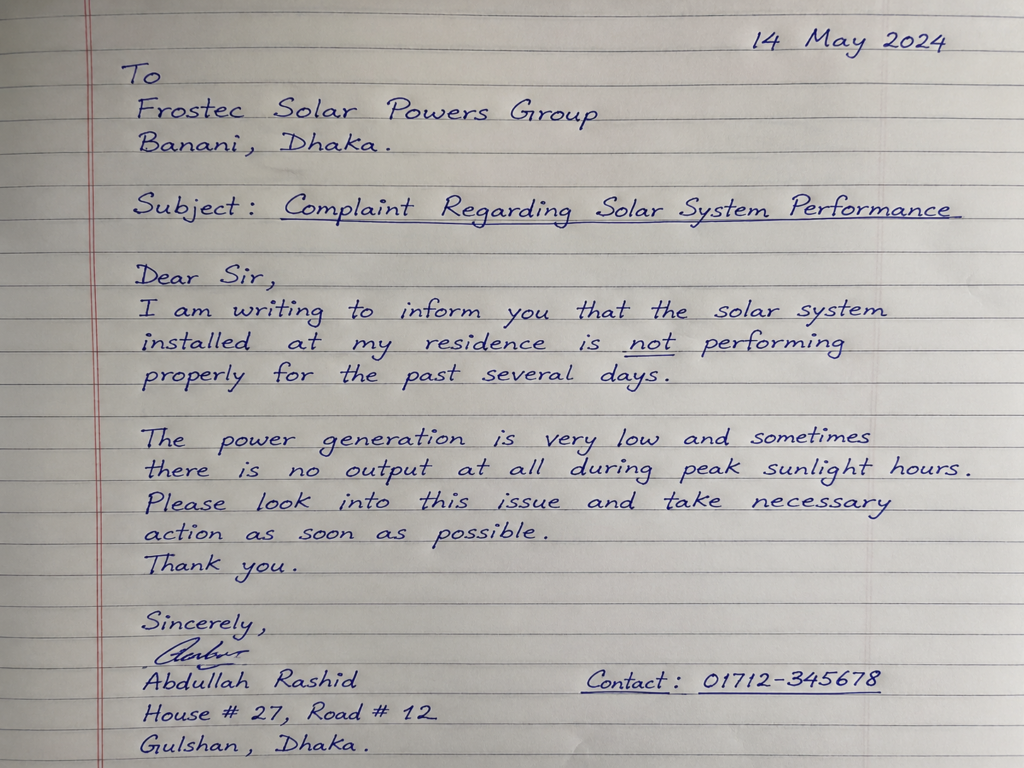 14 May 2024
To
Frostec Solar Powers Group
Banani, Dhaka.
Subject: Complaint Regarding Solar System Performance
Dear Sir,
I am writing to inform you that the solar system
installed at my residence is not performing
properly for the past several days.
The power generation is very low and sometimes
there is no output at all during peak sunlight hours.
Please look into this issue and take necessary
action as soon as possible.
Thank you.
Sincerely,
Abdullah Rashid
Contact: 01712-345678
House # 27, Road # 12
Gulshan, Dhaka.